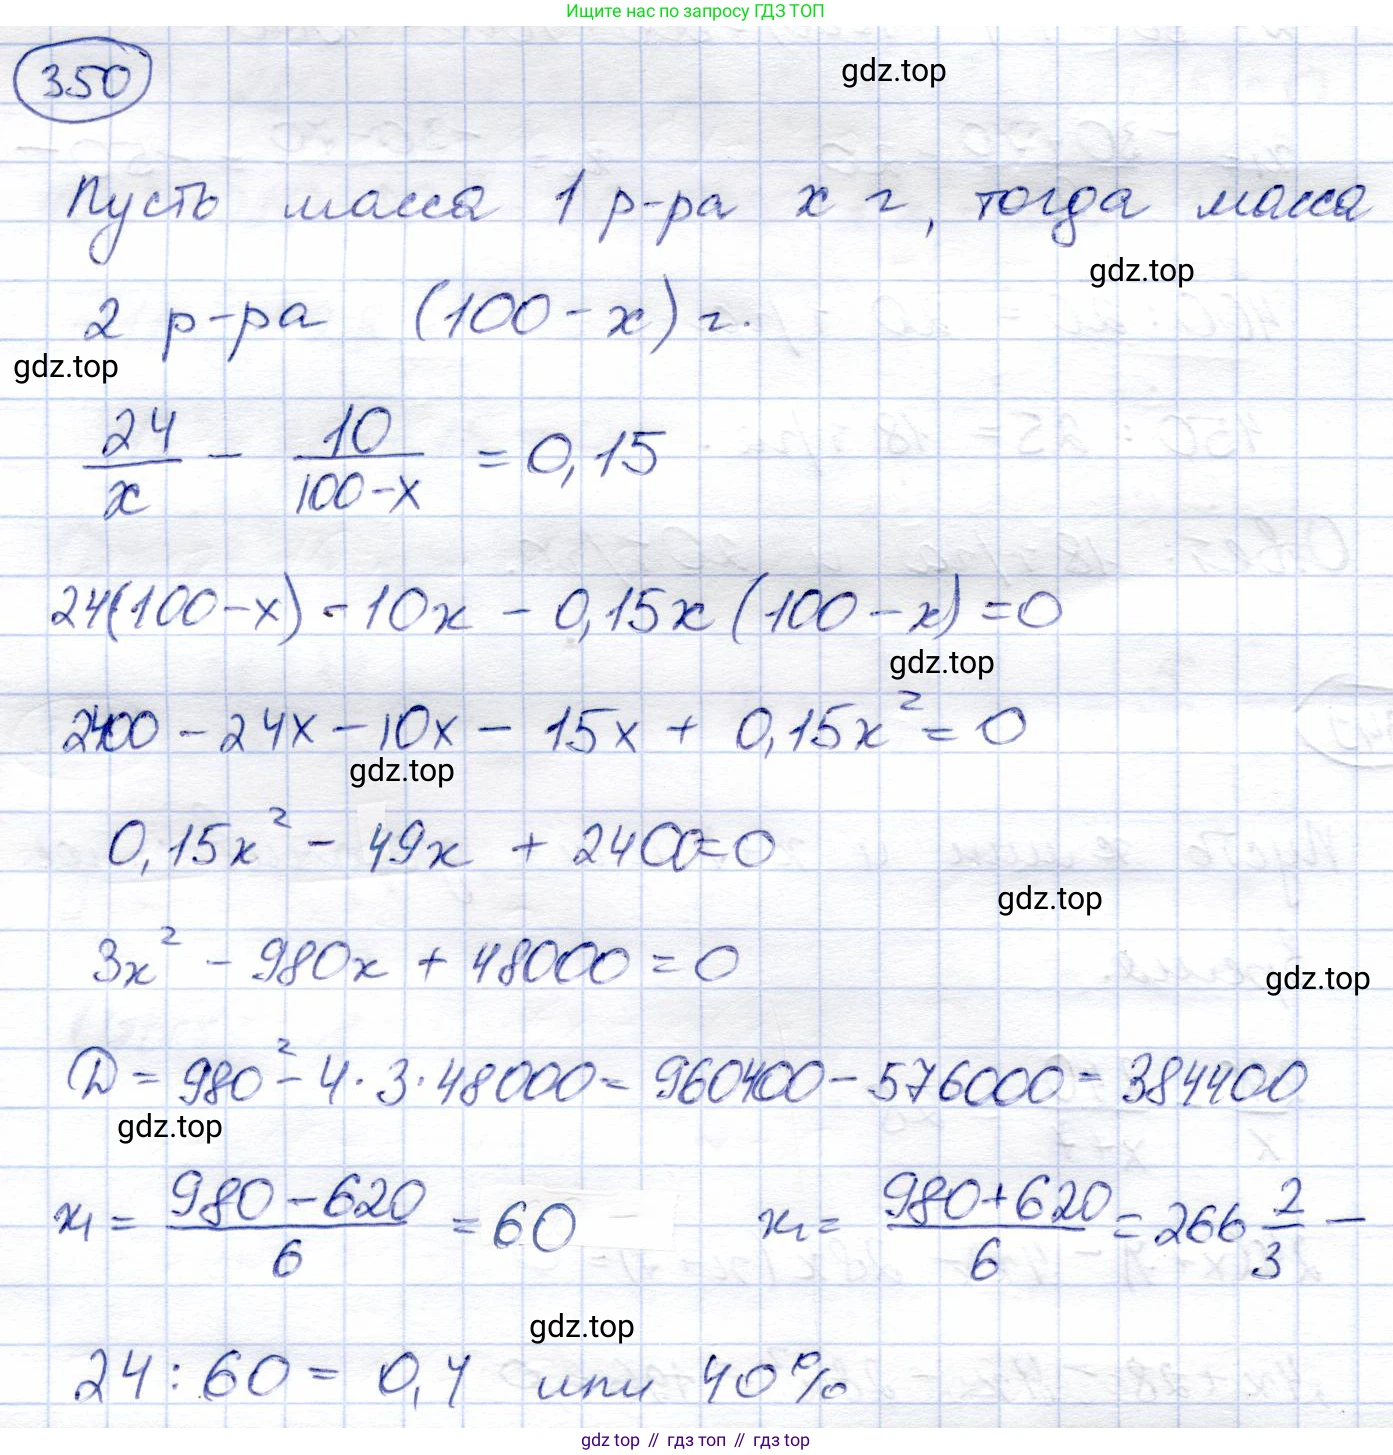 Ищите нас по запросу ГДЗ ТОП
350
gdz.top
Пусть масса 1 р-ра x г, тогда масса
gdz.top
2 р-ра (100-x) г.
gdz.top
24/x - 10/(100-x) = 0,15
24(100-x) - 10x - 0,15x(100-x) = 0
gdz.top
2400 - 24x - 10x - 15x + 0,15x² = 0
gdz.top
0,15x² - 49x + 2400 = 0
gdz.top
3x² - 980x + 48000 = 0
gdz.top
D = 980² - 4·3·48000 = 960400 - 576000 = 384400
gdz.top
x₁ = (980-620)/6 = 60 x₂ = (980+620)/6 = 266 2/3 -
gdz.top
24 : 60 = 0,4 или 40%
gdz top // гдз топ // гдз top